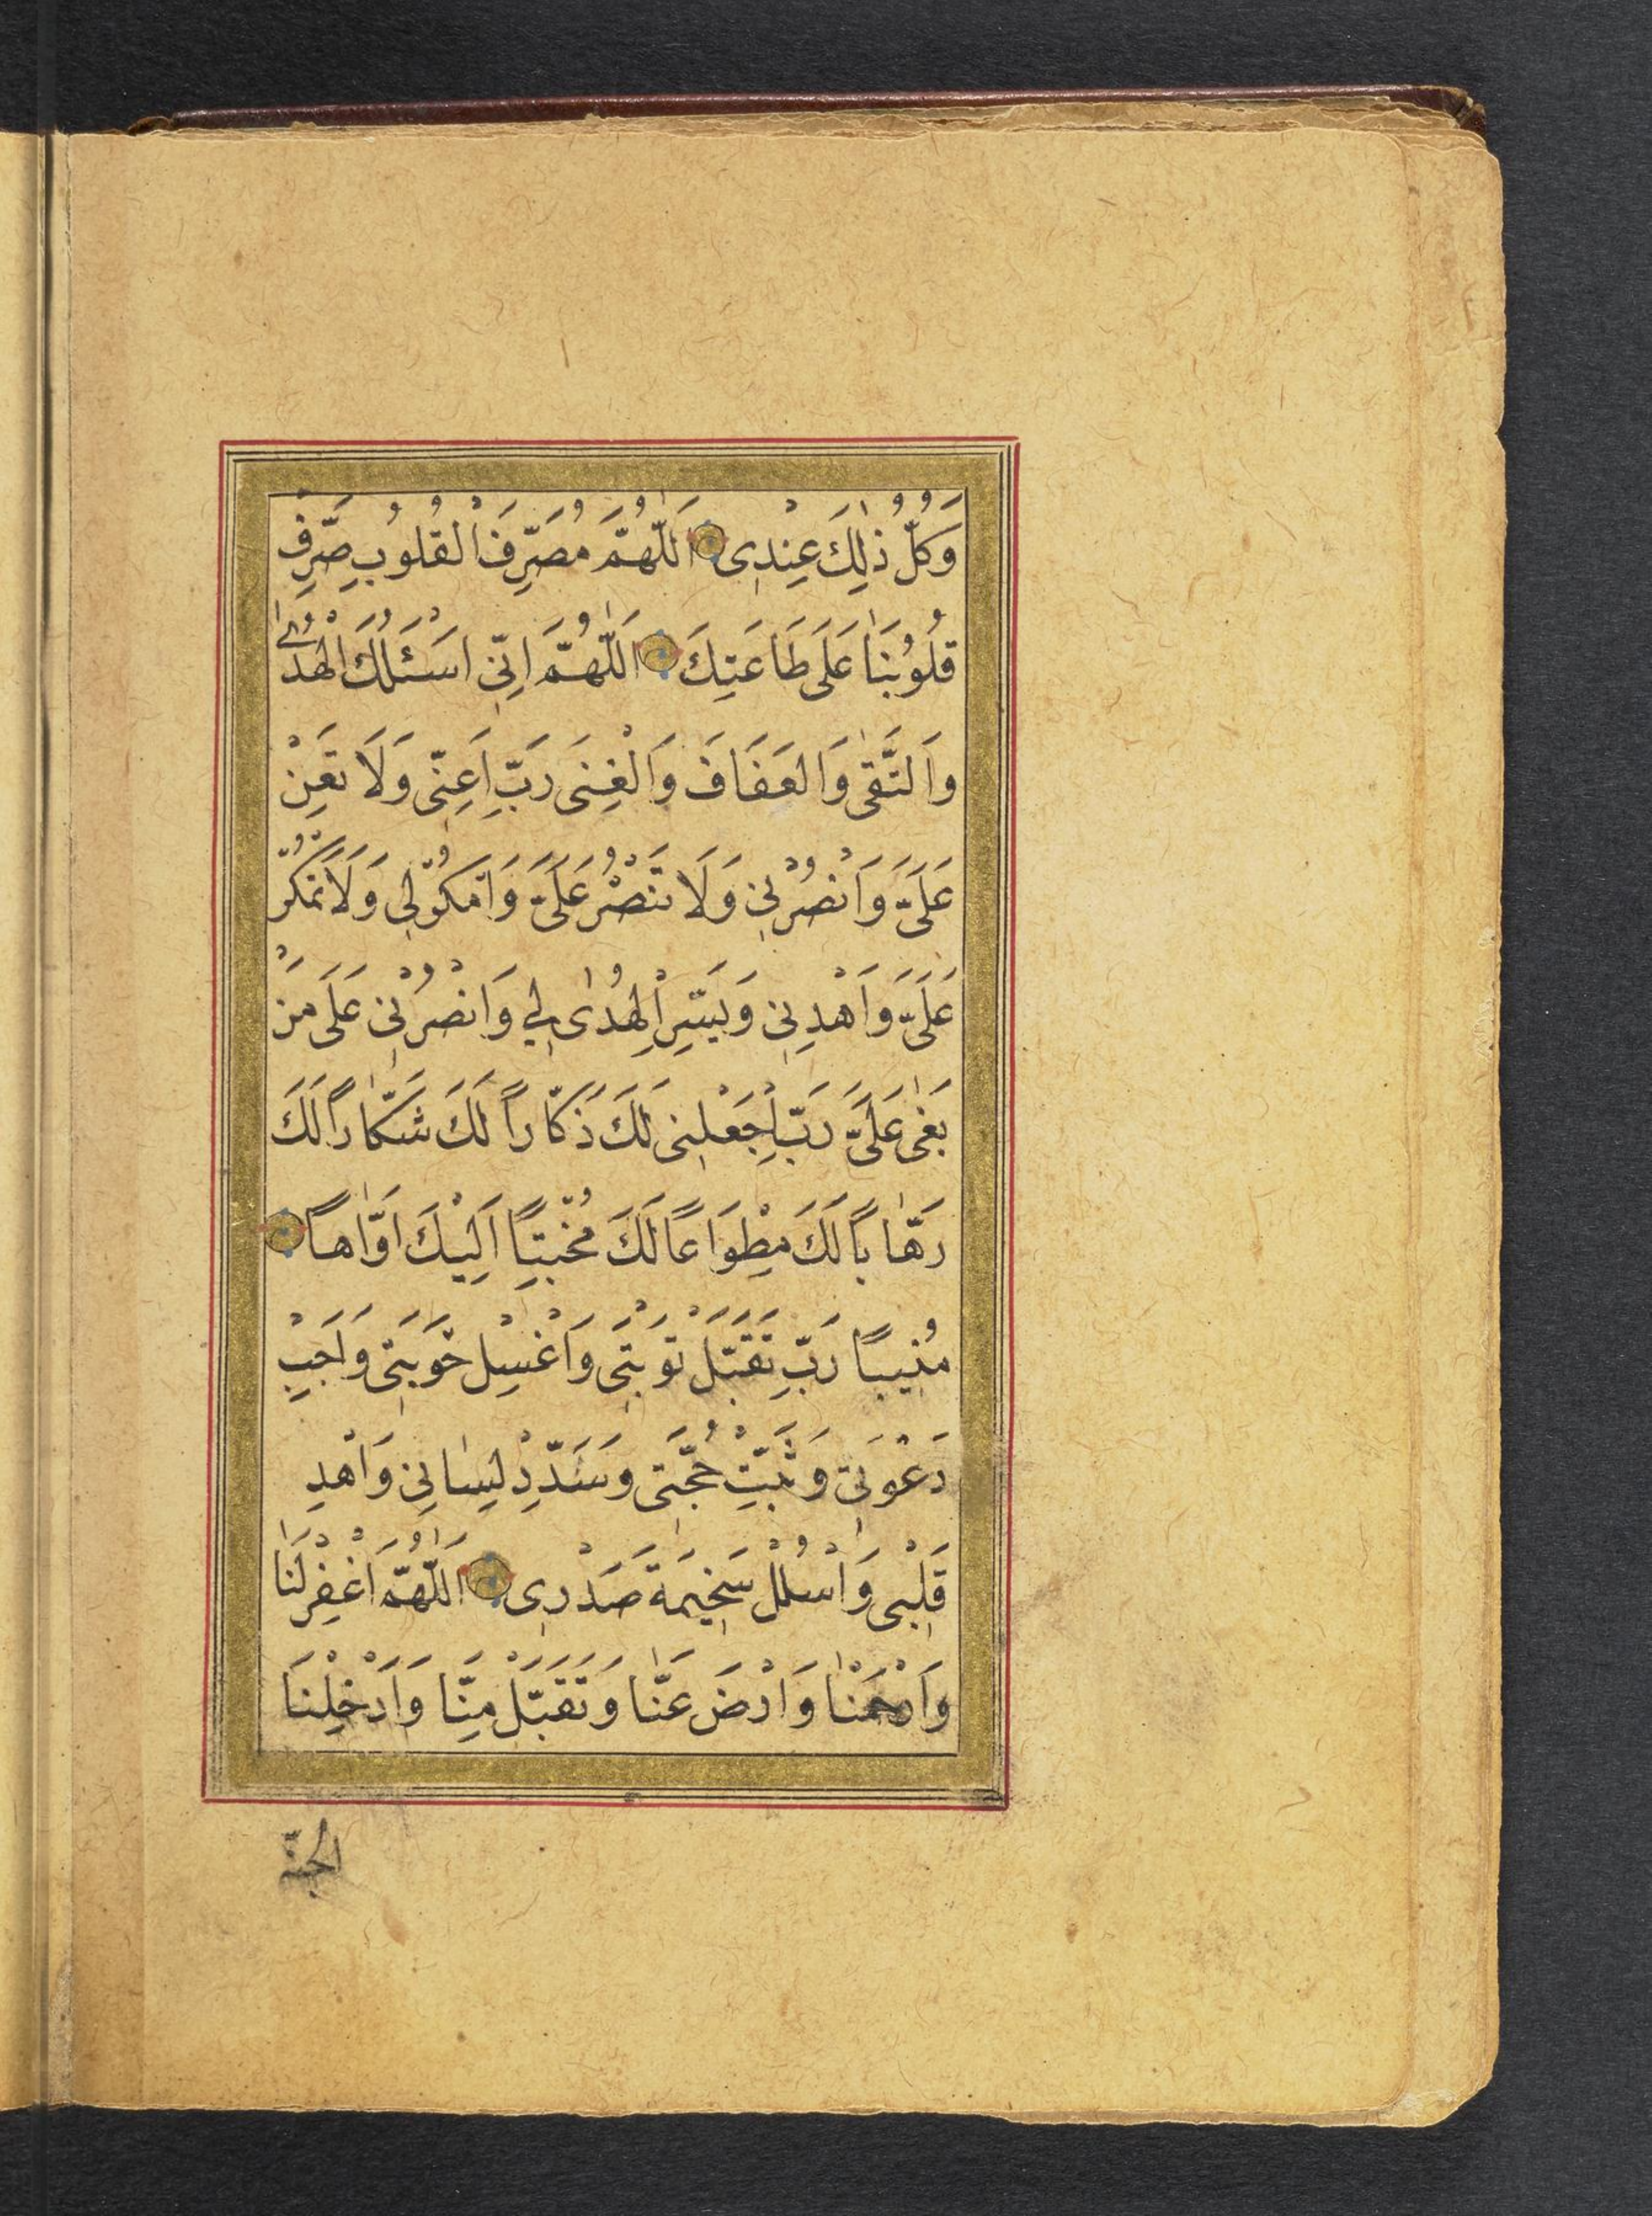 وَكُلُّ ذٰلِكَ عِنْدِى اَللّٰهُمَّ مُصَرِّفَ الْقُلُوبِ صَرِّفْ
قُلُوبَنَا عَلَى طَاعَتِكَ اَللّٰهُمَّ اِنِّى اَسْئَلُكَ الْهُدٰى
وَالتُّقٰى وَالْعَفَافَ وَالْغِنَى رَبِّ اَعِنِّى وَلَا تُعِنْ
عَلَىَّ وَانْصُرْنِى وَلَا تَنْصُرْ عَلَىَّ وَامْكُرْ لِى وَلَا تَمْكُرْ
عَلَىَّ وَاهْدِنِى وَيَسِّرِ الْهُدٰى لِى وَانْصُرْنِى عَلَى مَنْ
بَغٰى عَلَىَّ رَبِّ اجْعَلْنِى لَكَ ذَكَّارًا لَكَ شَكَّارًا لَكَ
رَهَّابًا لَكَ مِطْوَاعًا لَكَ مُخْبِتًا اِلَيْكَ اَوَّاهًا
مُنِيبًا رَبِّ تَقَبَّلْ تَوْبَتِى وَاغْسِلْ حَوْبَتِى وَاَجِبْ
دَعْوَتِى وَثَبِّتْ حُجَّتِى وَسَدِّدْ لِسَانِى وَاهْدِ
قَلْبِى وَاسْلُلْ سَخِيمَةَ صَدْرِى اَللّٰهُمَّ اغْفِرْ لَنَا
وَارْحَمْنَا وَارْضَ عَنَّا وَتَقَبَّلْ مِنَّا وَاَدْخِلْنَا
الجنّة